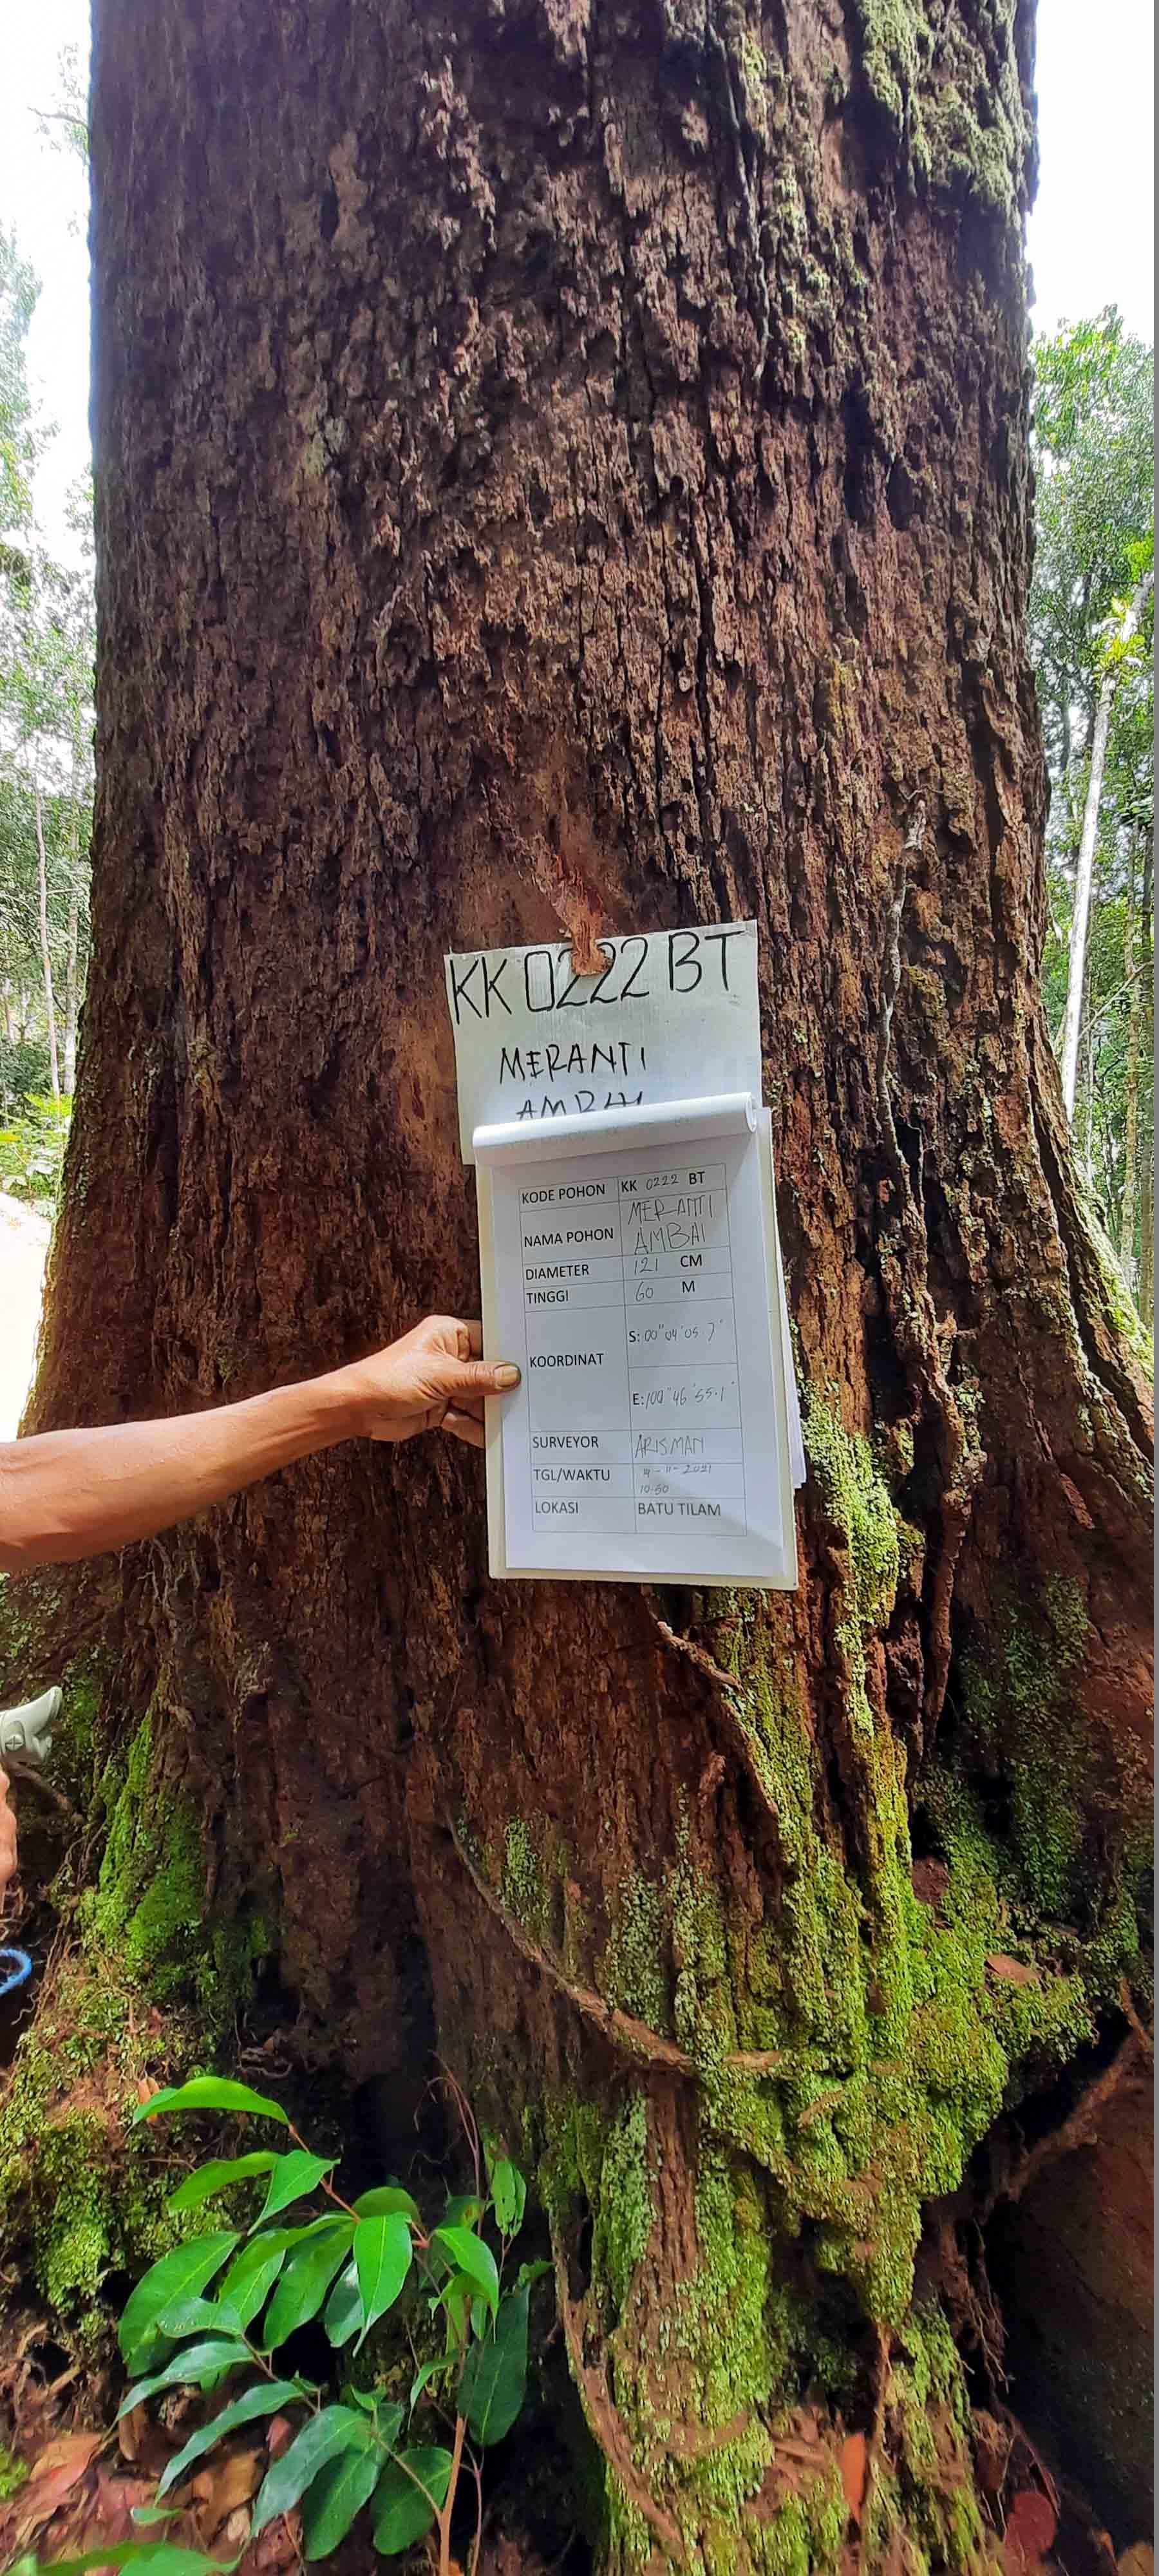 KK 0222 BT
MERANTI
AMBAI
KODE POHON KK 0222 BT
NAMA POHON MERANTI
AMBAI
DIAMETER 121 CM
TINGGI 60 M
KOORDINAT
S: 00" 04' 05.7"
E: 100" 46' 55.1"
SURVEYOR ARISMAN
TGL/WAKTU 14-11-2021
10.50
LOKASI BATU TILAM